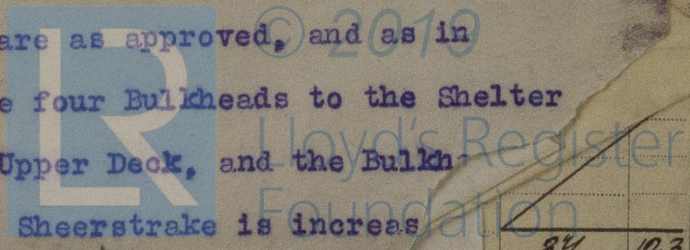 are as approved, and as in
e four Bulkheads to the Shelter
Upper Deck, and the Bulkh
Sheerstrake is increas
© 2019
Lloyd's Register
Foundation
LR
84